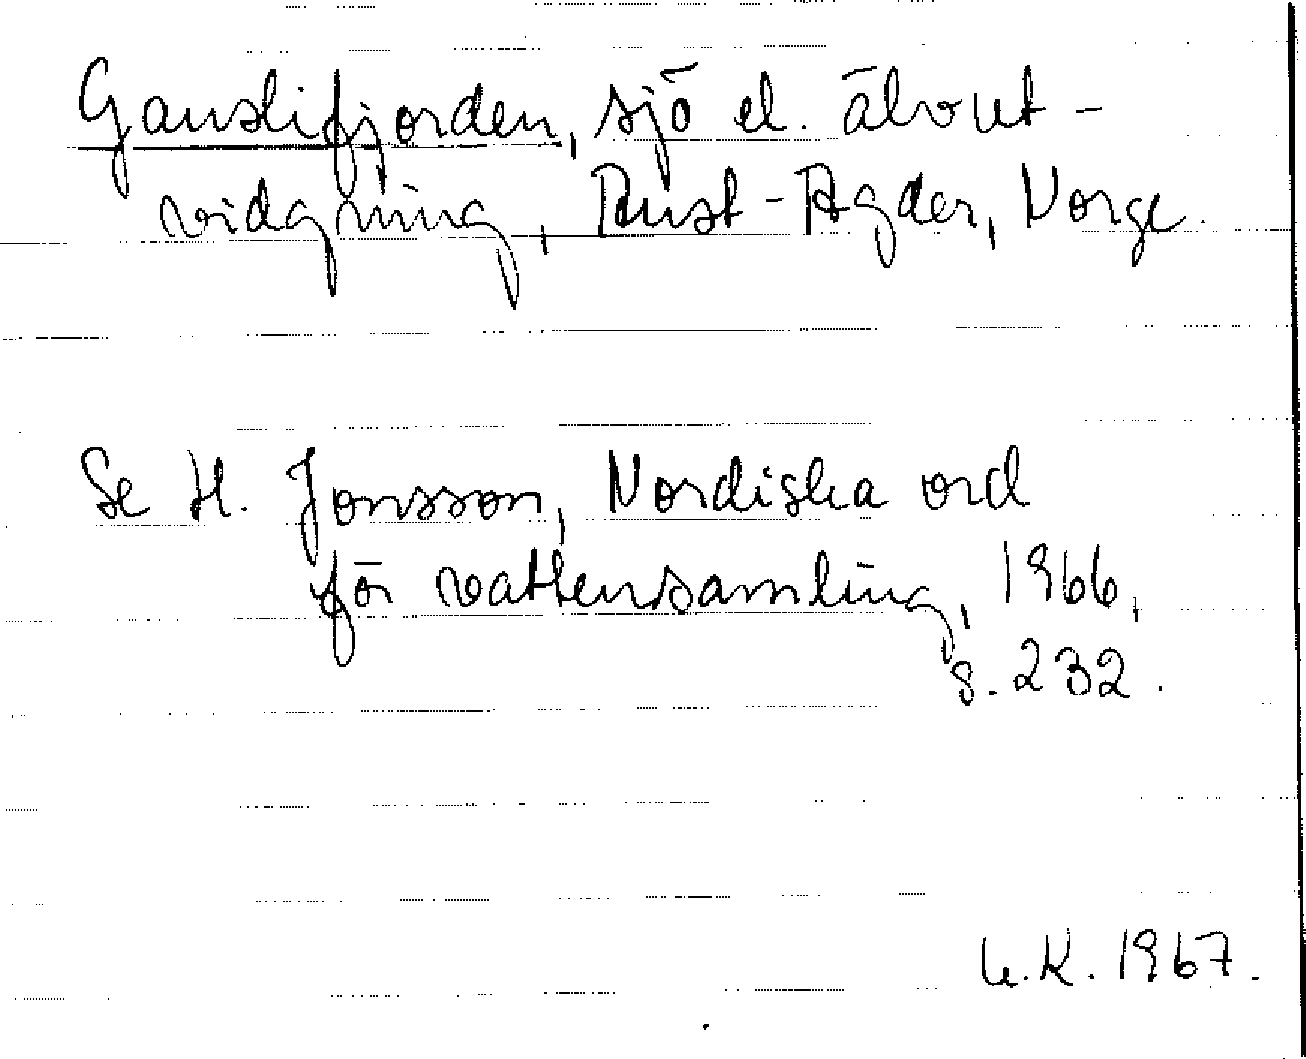 Gauslifjorden, sjö el. älvut-
vidgning, Aust-Agder, Norge.
Se H. Jonsson, Nordiska ord
för vattensamling, 1966,
s. 232.
U.K. 1967.